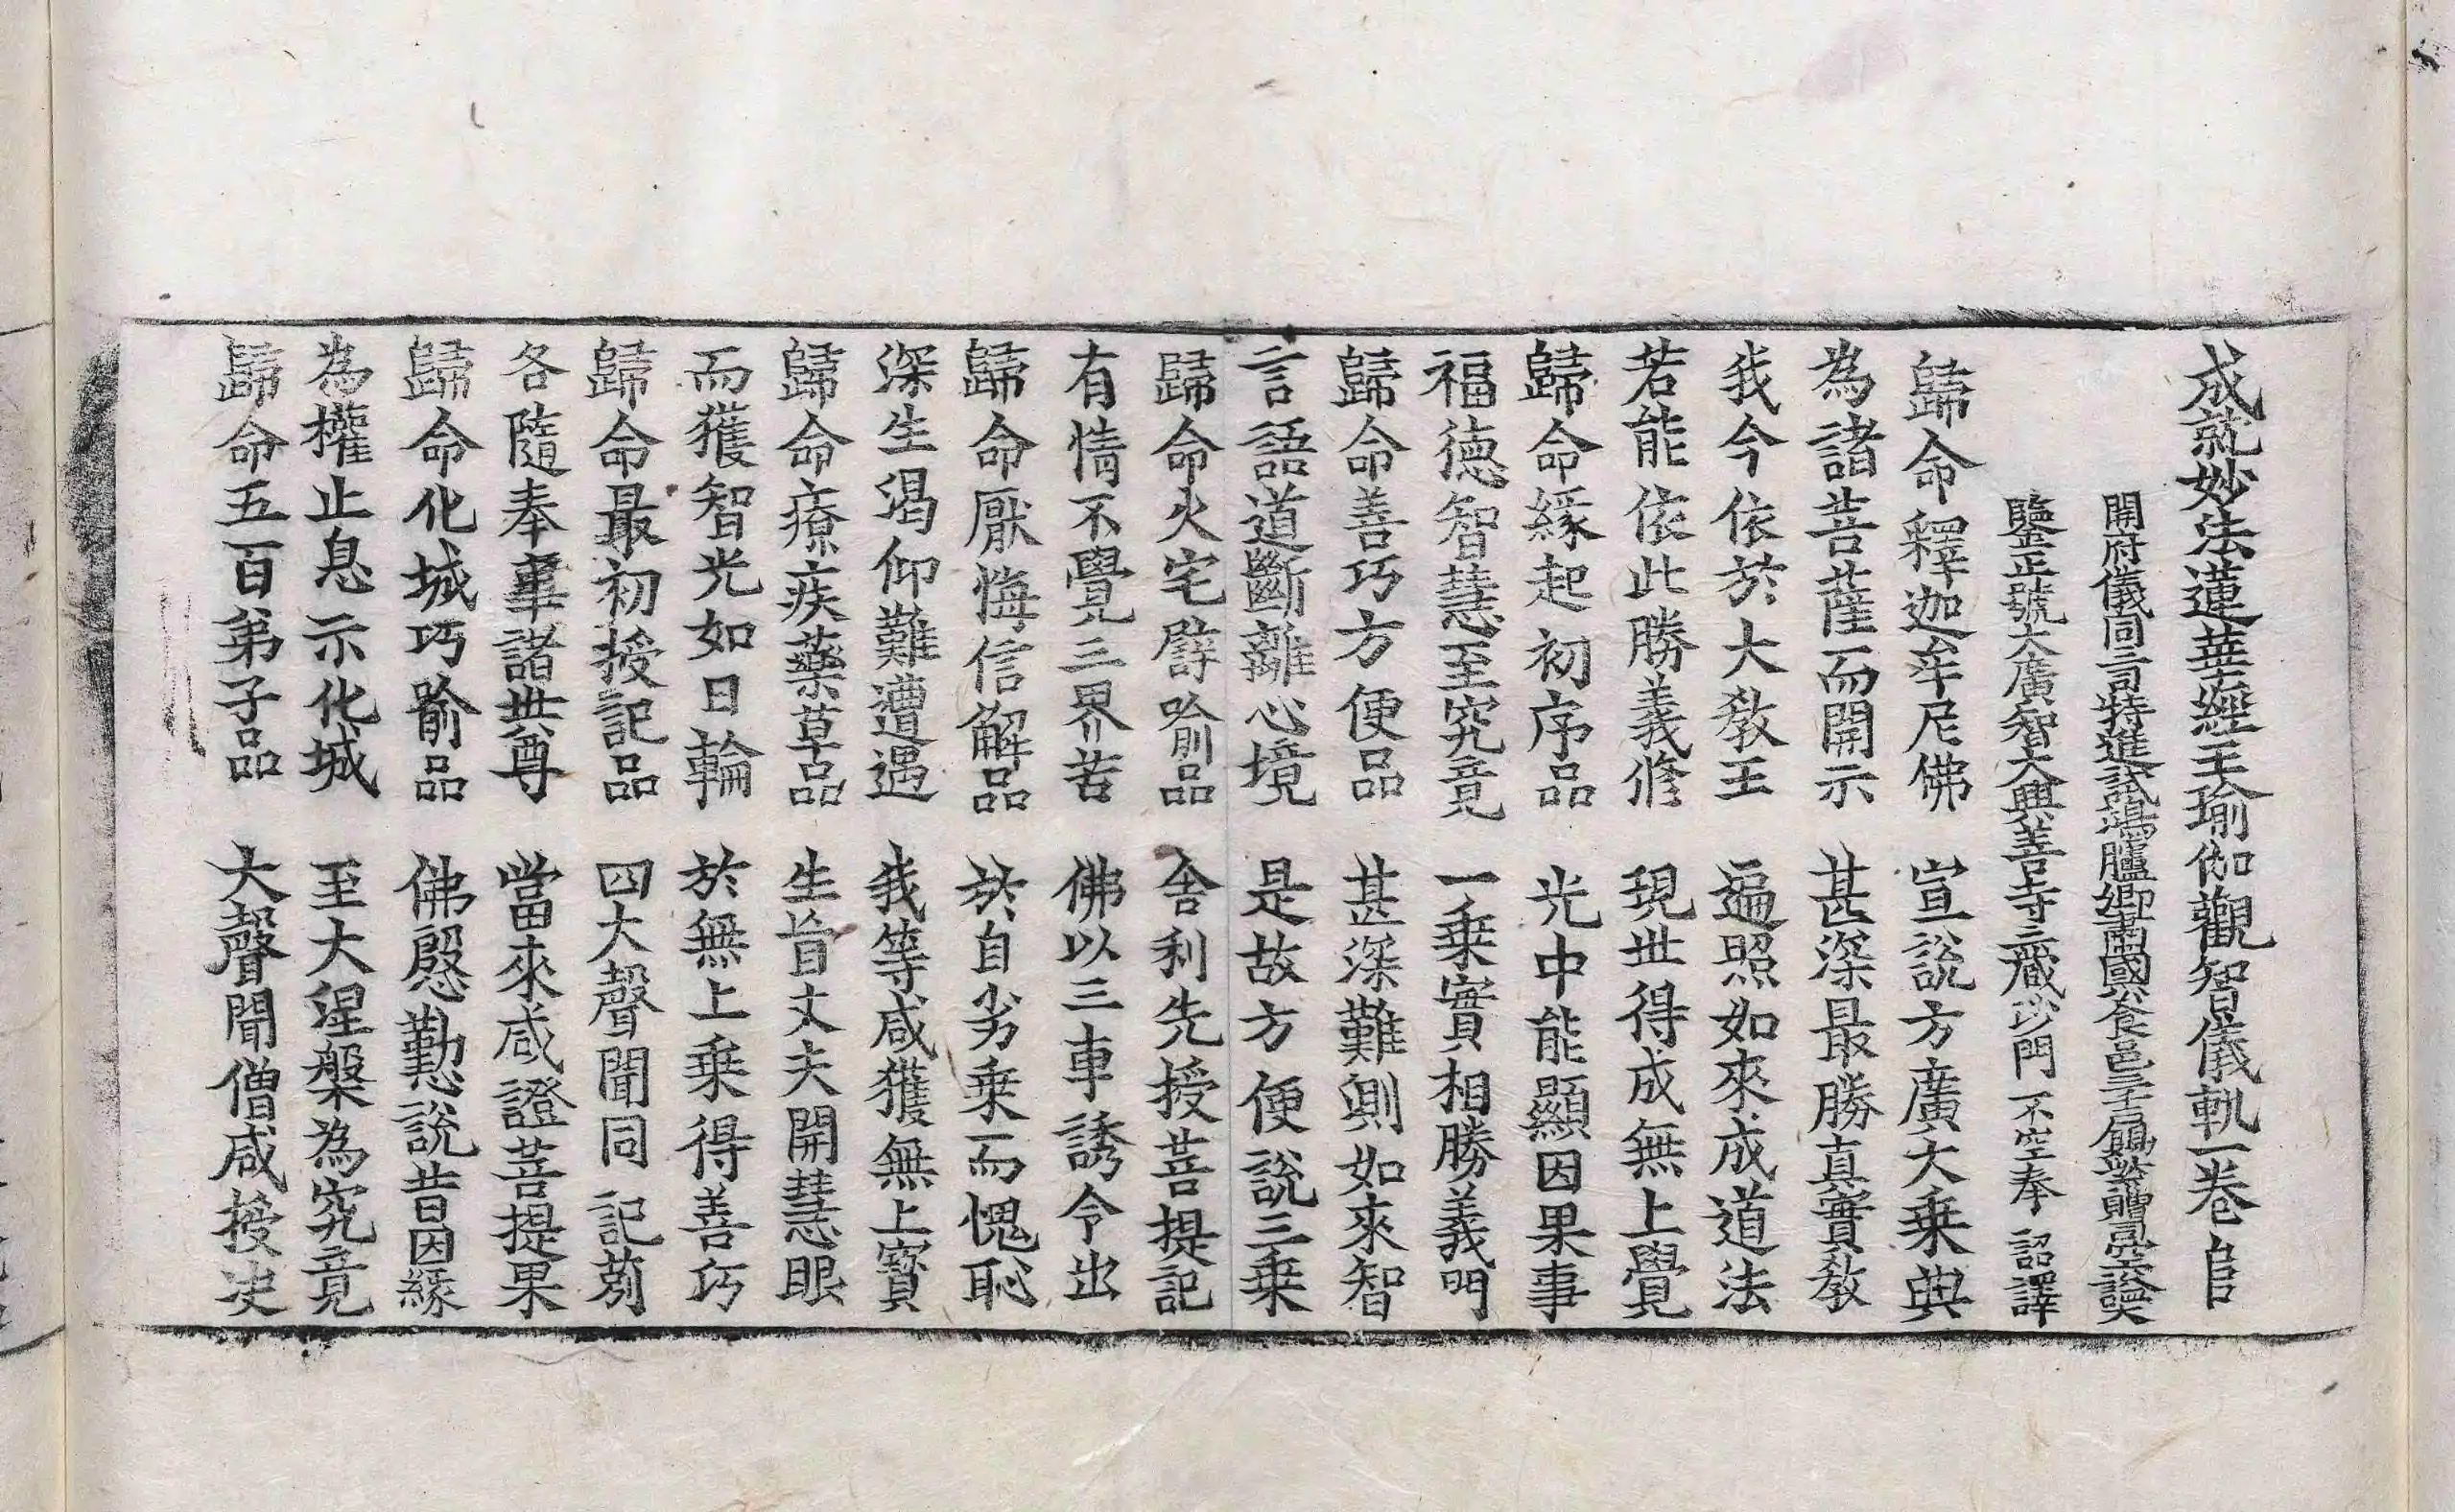 成就妙法蓮華經王瑜伽觀智儀軌一卷 𨸏
開府儀同三司特進試鴻臚卿肅國公食邑三千戶賜紫贈司空謚大
鑒正號大廣智大興善寺三藏沙門 不空奉 詔譯
歸命釋迦牟尼佛 宣說方廣大乘典
為諸菩薩而開示 甚深最勝真實教
我今依於大教王 遍照如來成道法
若能依此勝義修 現世得成無上覺
歸命緣起初序品 光中能顯因果事
福德智慧至究竟 一乘實相勝義門
歸命善巧方便品 甚深難測如來智
言語道斷離心境 是故方便說三乘
歸命火宅譬喻品 舍利先授菩提記
有情不覺三界苦 佛以三車誘令出
歸命厭悔信解品 於自劣乘而愧恥
深生渴仰難遭遇 我等咸獲無上寶
歸命療疾藥草品 生盲丈夫開慧眼
而獲智光如日輪 於無上乘得善巧
歸命最初授記品 四大聲聞同記莂
各隨奉事諸世尊 當來咸證菩提果
歸命化城巧喻品 佛慇懃說昔因緣
為權止息示化城 至大涅槃為究竟
歸命五百弟子品 大聲聞僧咸授決